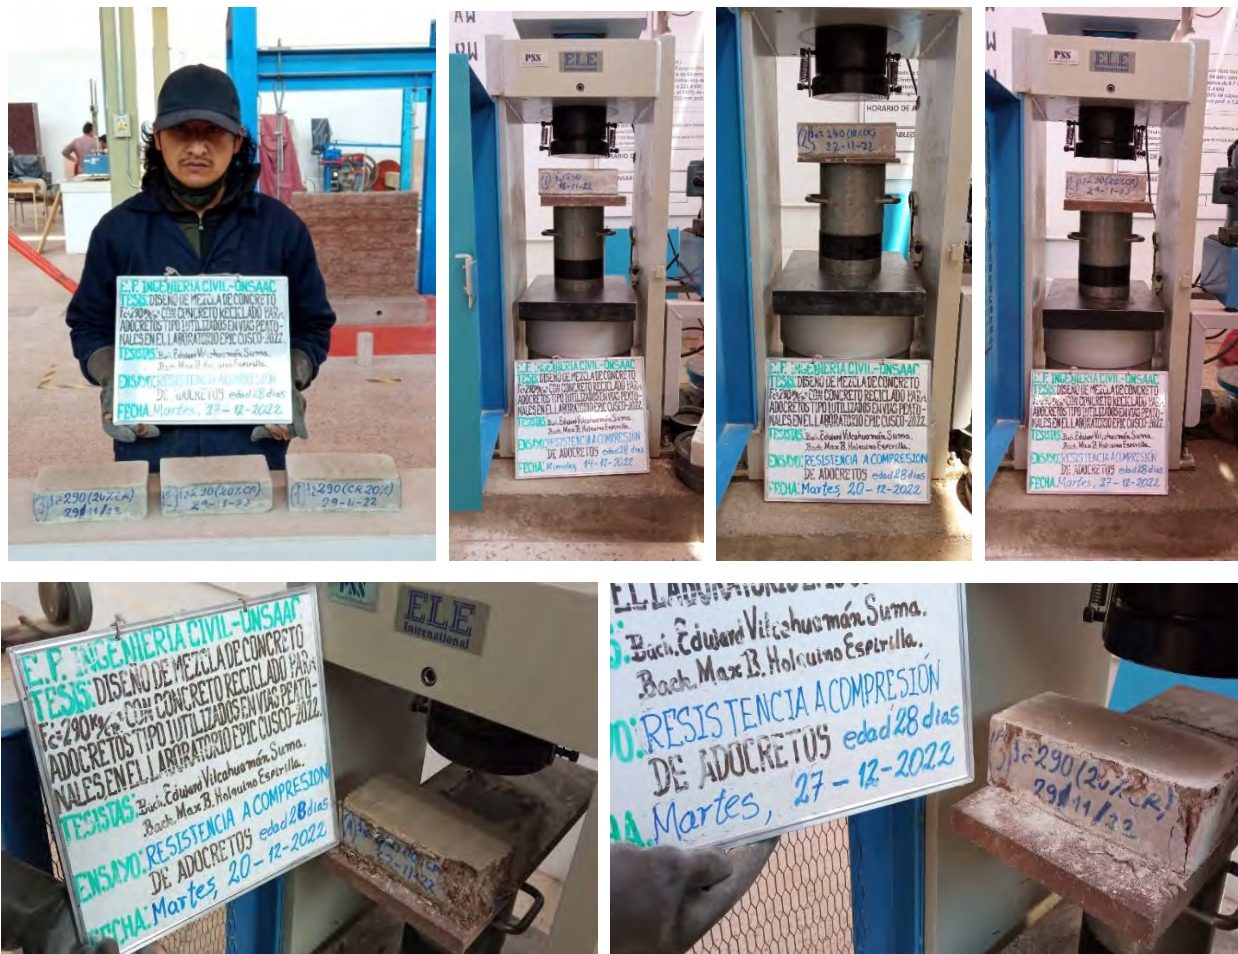 E.P. INGENIERIA CIVIL-UNSAAC
TESIS: DISEÑO DE MEZCLA DE CONCRETO
F'c=290 Kg/cm² CON CONCRETO RECICLADO PARA
ADOCRETOS TIPO I UTILIZADOS EN VIAS PEATO-
NALES EN EL LABORATORIO EPIC CUSCO-2022.
TESISTAS: Bach. Eduard Vilcahuamán Suma.
Bach. Max B. Holquino Espirilla.
ENSAYO: RESISTENCIA A COMPRESIÓN
DE ADOCRETOS edad 28 dias
FECHA: Martes, 27-12-2022
f'c=290(20%CR)
29/11/22
f'c=290(20%CR)
29-11-22
f'c=290(CR20%)
29-11-22
PSS
ELE
International
f'c=290
16-11-22
E.P. INGENIERIA CIVIL-UNSAAC
TESIS: DISEÑO DE MEZCLA DE CONCRETO
F'c=290 Kg/cm² CON CONCRETO RECICLADO PARA
ADOCRETOS TIPO I UTILIZADOS EN VIAS PEATO-
NALES EN EL LABORATORIO EPIC CUSCO-2022.
TESISTAS: Bach. Eduard Vilcahuamán Suma.
Bach. Max B. Holquino Espirilla.
ENSAYO: RESISTENCIA A COMPRESIÓN
DE ADOCRETOS edad 28 dias
FECHA: Miercoles, 14-12-2022
HORARIO DE
f'c=290(10%CR)
22-11-22
E.P. INGENIERIA CIVIL-UNSAAC
TESIS: DISEÑO DE MEZCLA DE CONCRETO
F'c=290 Kg/cm² CON CONCRETO RECICLADO PARA
ADOCRETOS TIPO I UTILIZADOS EN VIAS PEATO-
NALES EN EL LABORATORIO EPIC CUSCO-2022.
TESISTAS: Bach. Eduard Vilcahuamán Suma.
Bach. Max B. Holquino Espirilla.
ENSAYO: RESISTENCIA A COMPRESIÓN
DE ADOCRETOS edad 28 dias
FECHA: Martes, 20-12-2022
PSS
ELE
International
f'c=290(20%CR)
29-11-22
E.P. INGENIERIA CIVIL-UNSAAC
TESIS: DISEÑO DE MEZCLA DE CONCRETO
F'c=290 Kg/cm² CON CONCRETO RECICLADO PARA
ADOCRETOS TIPO I UTILIZADOS EN VIAS PEATO-
NALES EN EL LABORATORIO EPIC CUSCO-2022.
TESISTAS: Bach. Eduard Vilcahuamán Suma.
Bach. Max B. Holquino Espirilla.
ENSAYO: RESISTENCIA A COMPRESIÓN
DE ADOCRETOS edad 28 dias
FECHA: Martes, 27-12-2022
PSS
ELE
International
E.P. INGENIERIA CIVIL-UNSAAC
TESIS: DISEÑO DE MEZCLA DE CONCRETO
F'c=290 Kg/cm² CON CONCRETO RECICLADO PARA
ADOCRETOS TIPO I UTILIZADOS EN VIAS PEATO-
NALES EN EL LABORATORIO EPIC CUSCO-2022.
TESISTAS: Bach. Eduard Vilcahuamán Suma.
Bach. Max B. Holquino Espirilla.
ENSAYO: RESISTENCIA A COMPRESIÓN
DE ADOCRETOS edad 28 dias
FECHA: Martes, 20-12-2022
22-11-22
EL LABORATORIO
Bach. Eduard Vilcahuamán Suma.
Bach. Max B. Holquino Espirilla.
O: RESISTENCIA A COMPRESIÓN
DE ADOCRETOS edad 28 dias
Martes, 27-12-2022
f'c=290(20%CR)
29/11/22